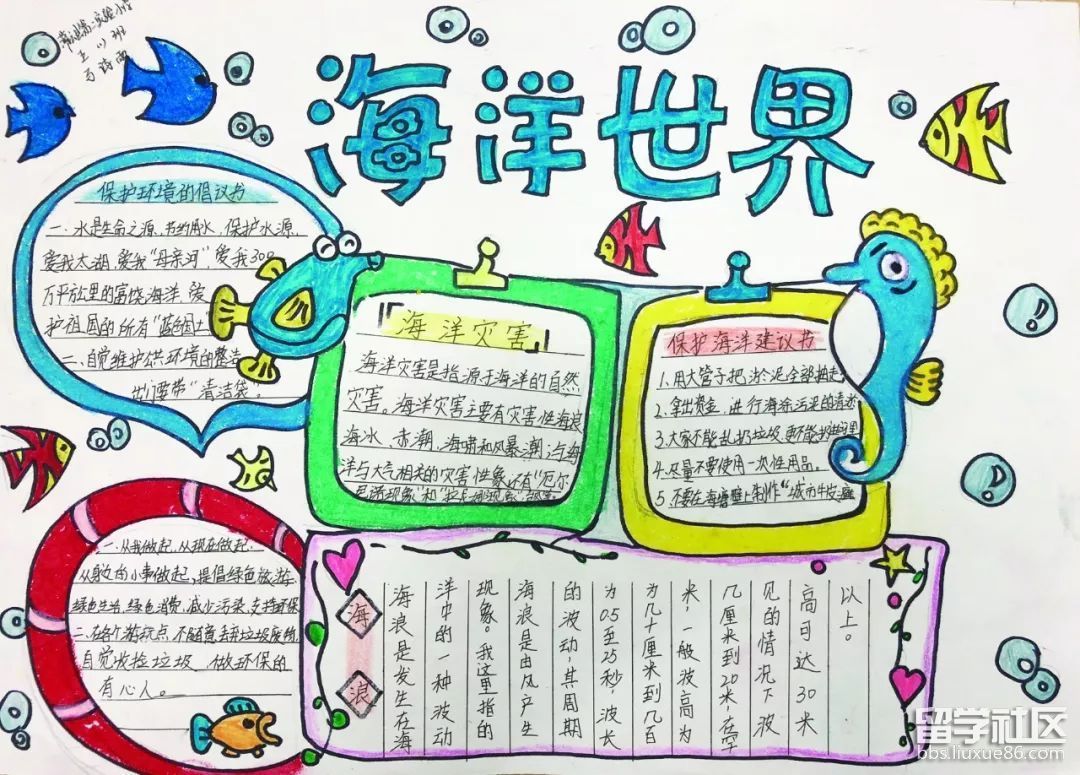 五(1)班
海洋世界
保护环境的倡议书
一、水是生命之源、节约用水,保护水源,
爱我太湖,爱我"母亲河",爱我300
万平方公里的富饶海洋,爱
护祖国的所有"蓝色国土
二、自觉维护公共环境的整洁
出门要带"清洁袋"。
『海洋灾害』
海洋灾害是指源于海洋的自然
灾害。海洋灾害主要有灾害性海浪
海冰、赤潮、海啸和风暴潮;汽海
洋与大气相关的灾害性象还有"厄尔
尼诺现象"和
保护海洋建议书
1、用大管子把淤泥全部抽走
2、拿出资金,进行海 污染的清
3、大家不能乱扔垃圾,更不能扔 里
4、尽量不要使用一次性用品。
5、不要在海 上制作"城市牛皮
一、从我做起,从现在做起,
从身边的小事做起,提倡绿色旅游
绿色生活,绿色消费,减少污染,支持环保
二、在各个游玩点,不随意丢弃垃圾废物,
自觉收捡垃圾、做环保的
有心人。
海浪
海浪是发生在海
洋中的一种波动
现象。我这里指的
海浪是由风产生
的波动,其周期
为0.5至25秒,波长
为几十厘米到几百
米,一般波高为
几厘米到20米,在罕
见的情况下波
高可达30米
以上。
留学社区
bbs.liuxue86.com